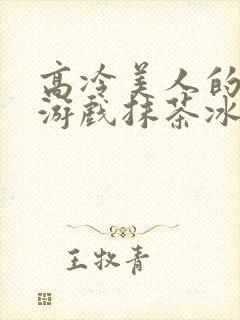 高冷美人的
游戏抹茶冰
王牧青